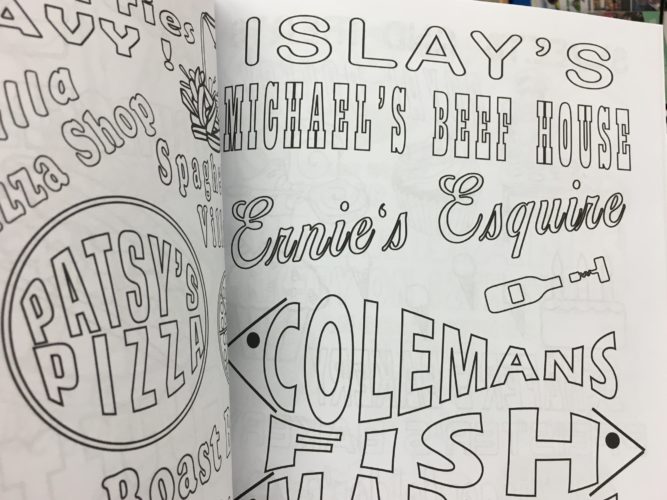 ies
AVY!
illa
zza Shop
Spaghe
Vil
PATSY'S
PIZZA
Roast
ISLAY'S
MICHAEL'S BEEF HOUSE
Ernie's Esquire
COLEMANS
FISH
MAR